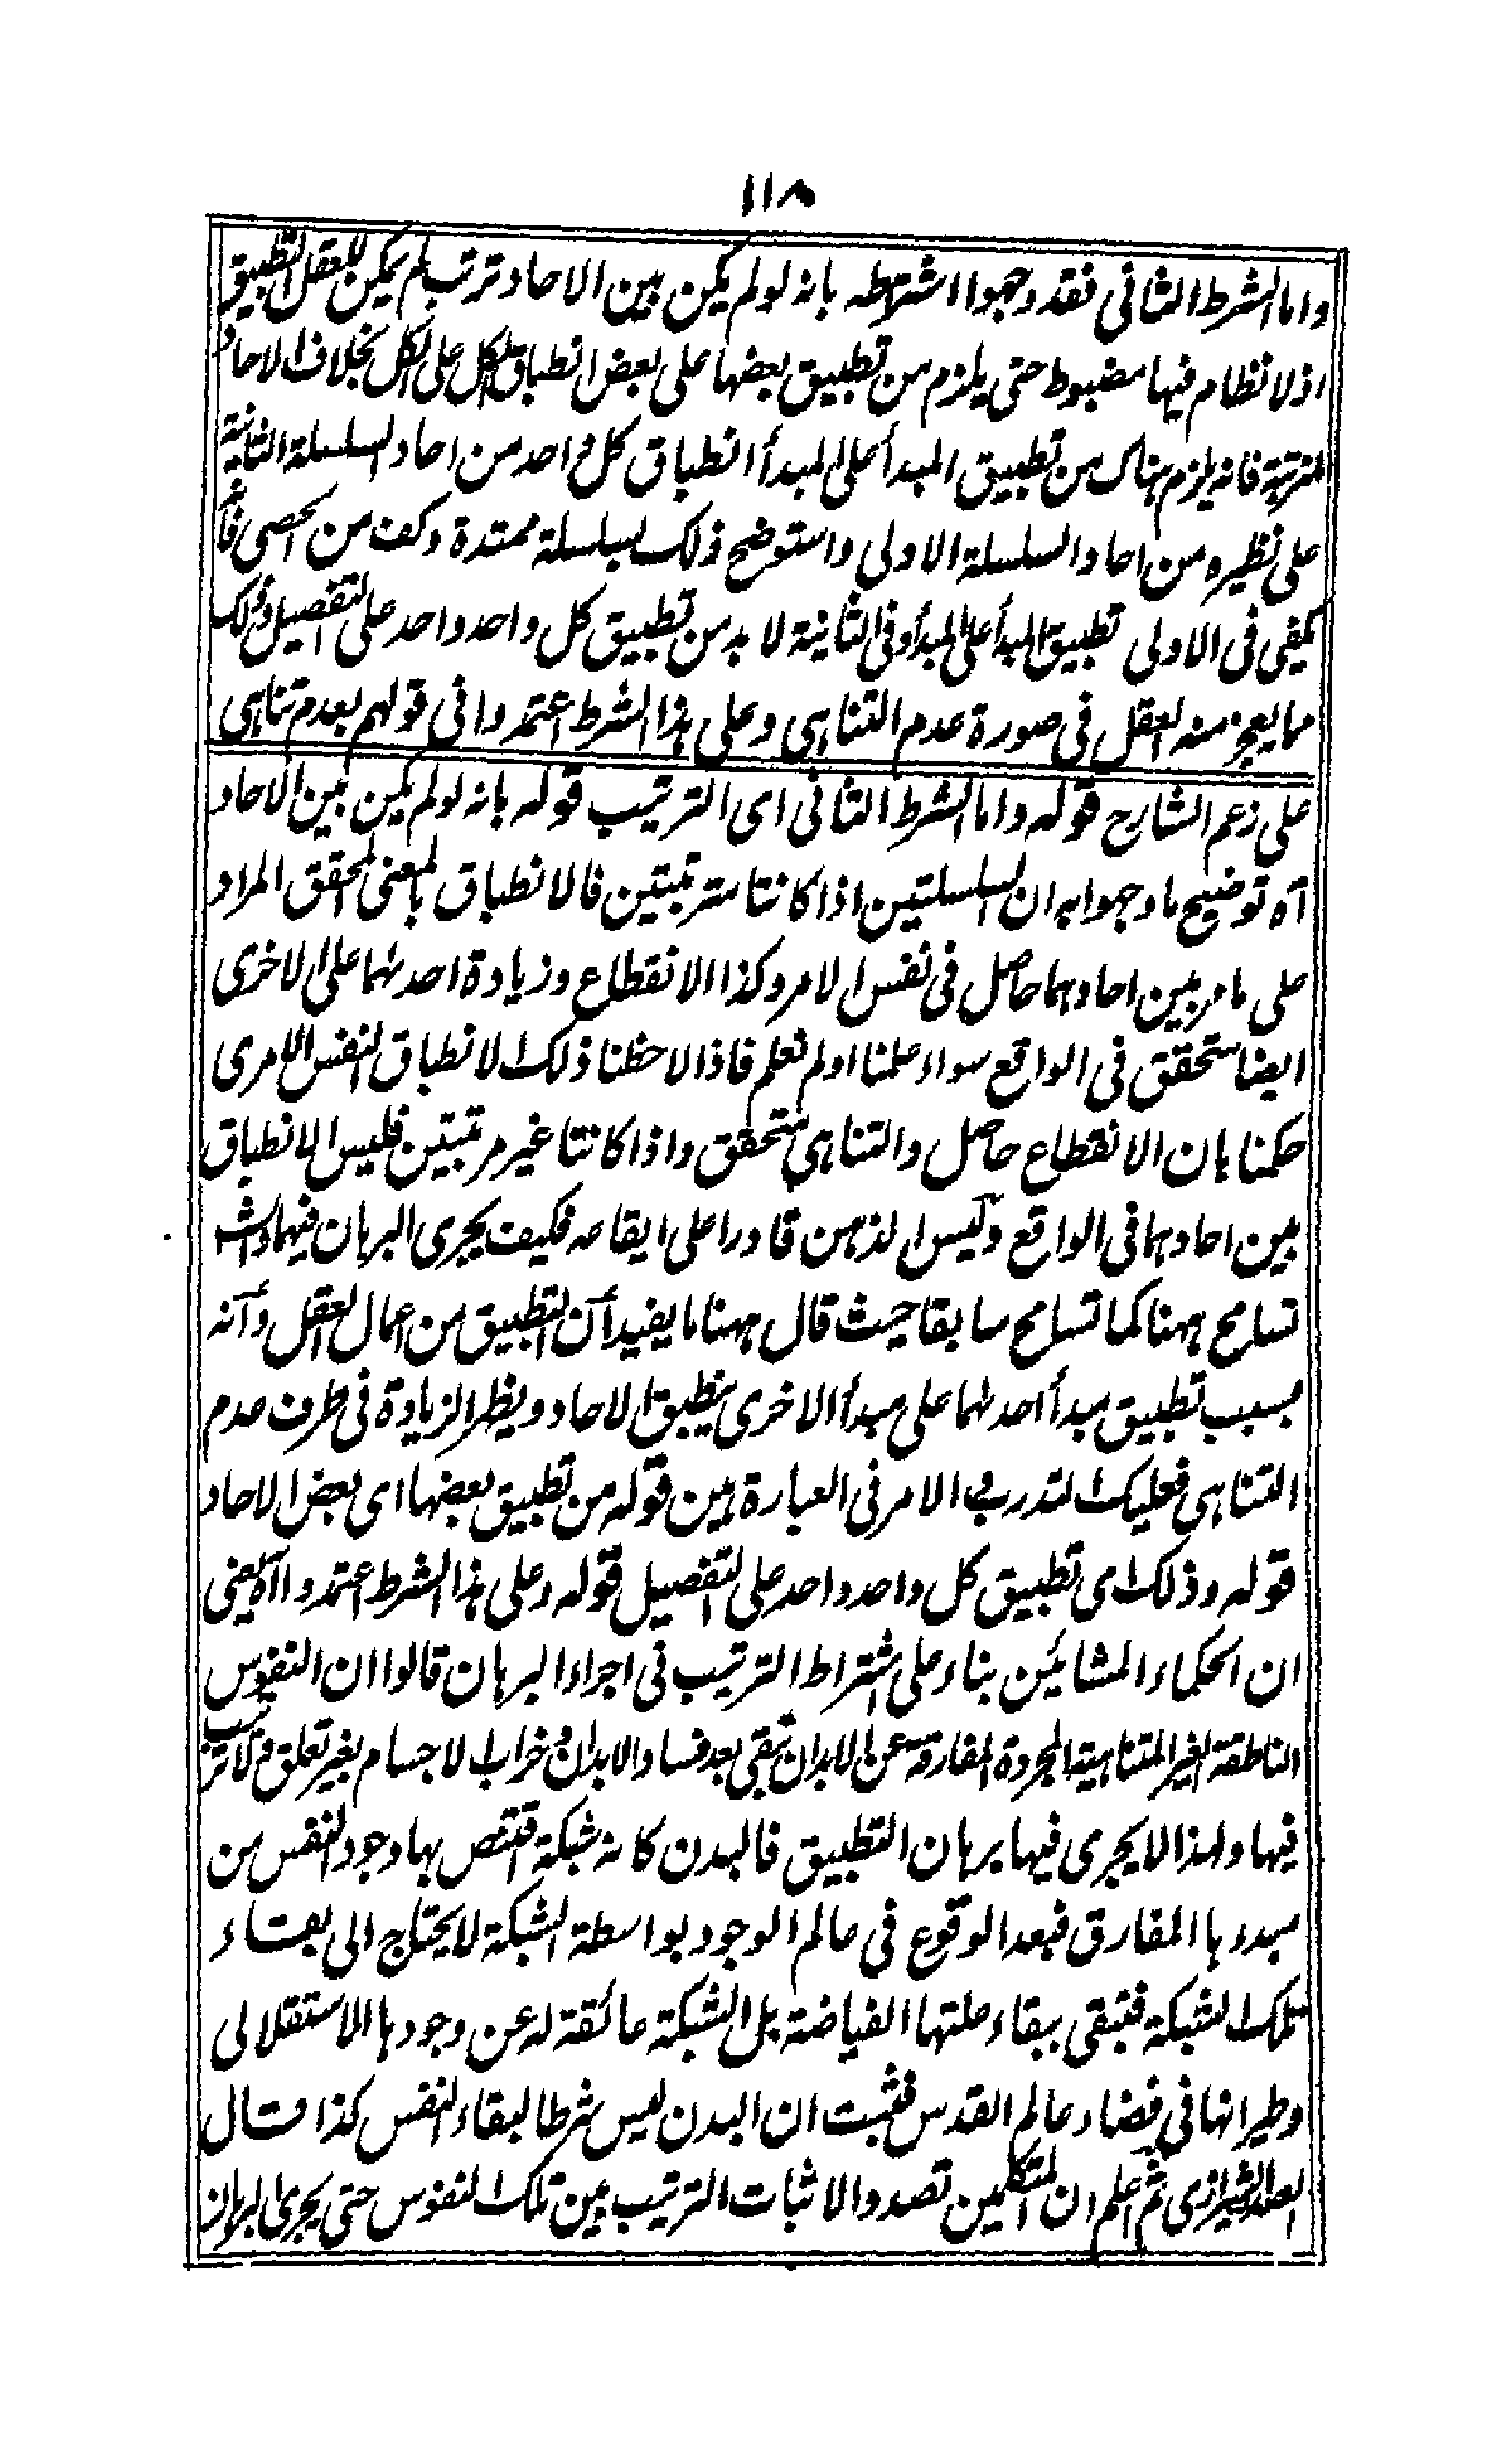 ١١٨
واما الشرط الثانى فقد وجهوا اشتراطه بانه لو لم يكن بين الاحاد ترتب لم يمكن للعقل التطبيق
اذ لا نظام فيها مضبوط حتى يلزم من تطبيق بعضها على بعض انطباق الكل على الكل بخلاف الاحاد
المترتبة فانه يلزم هناك من تطبيق المبدأ على المبدأ انطباق كل واحد من احاد السلسلة الثانية
على نظيره من احاد السلسلة الاولى واستوضح ذلك بسلسلة ممتدة وكف من الحصى فانه
يكفى فى الاولى تطبيق المبدأ على المبدأ وفى الثانية لا بد من تطبيق كل واحد واحد على التفصيل وذلك
مما يعجز منه العقل فى صورة عدم التناهى وعلى هذا الشرط اعتمدوا فى قولهم بعدم تناهى
على زعم الشارح قوله واما الشرط الثانى اى الترتيب قوله بانه لو لم يكن بين الاحاد
آه توضيح ما وجهوا به ان السلسلتين اذا كانتا مترتبتين فالانطباق بالمعنى المحقق المراد
على ما مر بين احادهما حاصل فى نفس الامر وكذا الانقطاع وزيادة احدهما على الاخرى
ايضا متحقق فى الواقع سواء علمنا او لم نعلم فاذا لاحظنا ذلك الانطباق النفس الامرى
حكمنا بان الانقطاع حاصل والتناهى متحقق واذا كانتا غير مرتبتين فليس الانطباق
بين احادهما فى الواقع وليس الذهن قادرا على ايقاعه فكيف يجرى البرهان فيهما والش
تسامح ههنا كما تسامح سابقا حيث قال ههنا ما يفيد أن التطبيق من اعمال العقل وأنه
بسبب تطبيق مبدأ احدهما على مبدأ الاخرى ينطبق الاحاد ويظهر الزيادة فى طرف عدم
التناهى فعليك التدرب فى الامر فى العبارة بين قوله من تطبيق بعضها اى بعض الاحاد
قوله وذلك اى تطبيق كل واحد واحد على التفصيل قوله وعلى هذا الشرط اعتمدوا آه يعنى
ان الحكماء المشائين بناء على اشتراط الترتيب فى اجراء البرهان قالوا ان النفوس
الناطقة الغير المتناهية المجردة المفارقة عن الابدان تبقى بعد فساد الابدان وخراب الاجسام بغير تعلق ولا ترتب
فيها ولهذا لا يجرى فيها برهان التطبيق فالبدن كانه شبكة تقتنص بها وجود النفس من
مبدءها المفارق فبعد الوقوع فى عالم الوجود بواسطة الشبكة لا يحتاج الى بقاء
تلك الشبكة فتبقى ببقاء علتها الفياضة بل الشبكة عائقة له عن وجودها الاستقلالى
وطيرانها فى فضاء عالم القدس فثبت ان البدن ليس شرطا لبقاء النفس كذا قال
الصدر الشيرازى ثم اعلم ان المتكلمين تصدوا لاثبات الترتيب بين تلك النفوس حتى يجرى البرهان